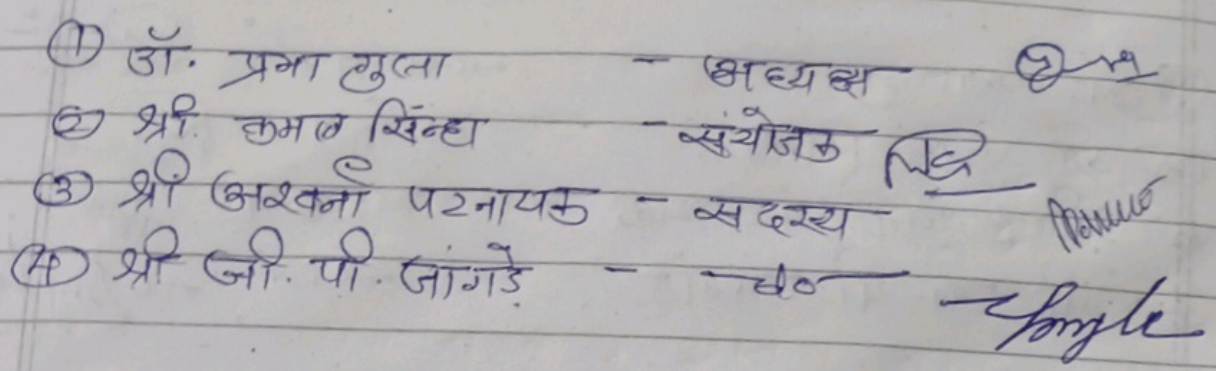 ① डॉ. प्रभा गुप्ता - अध्यक्ष
② श्री. कमल सिन्हा - संयोजक
③ श्री अश्वनी पटनायक - सदस्य
④ श्री जी. पी. जांगड़े -